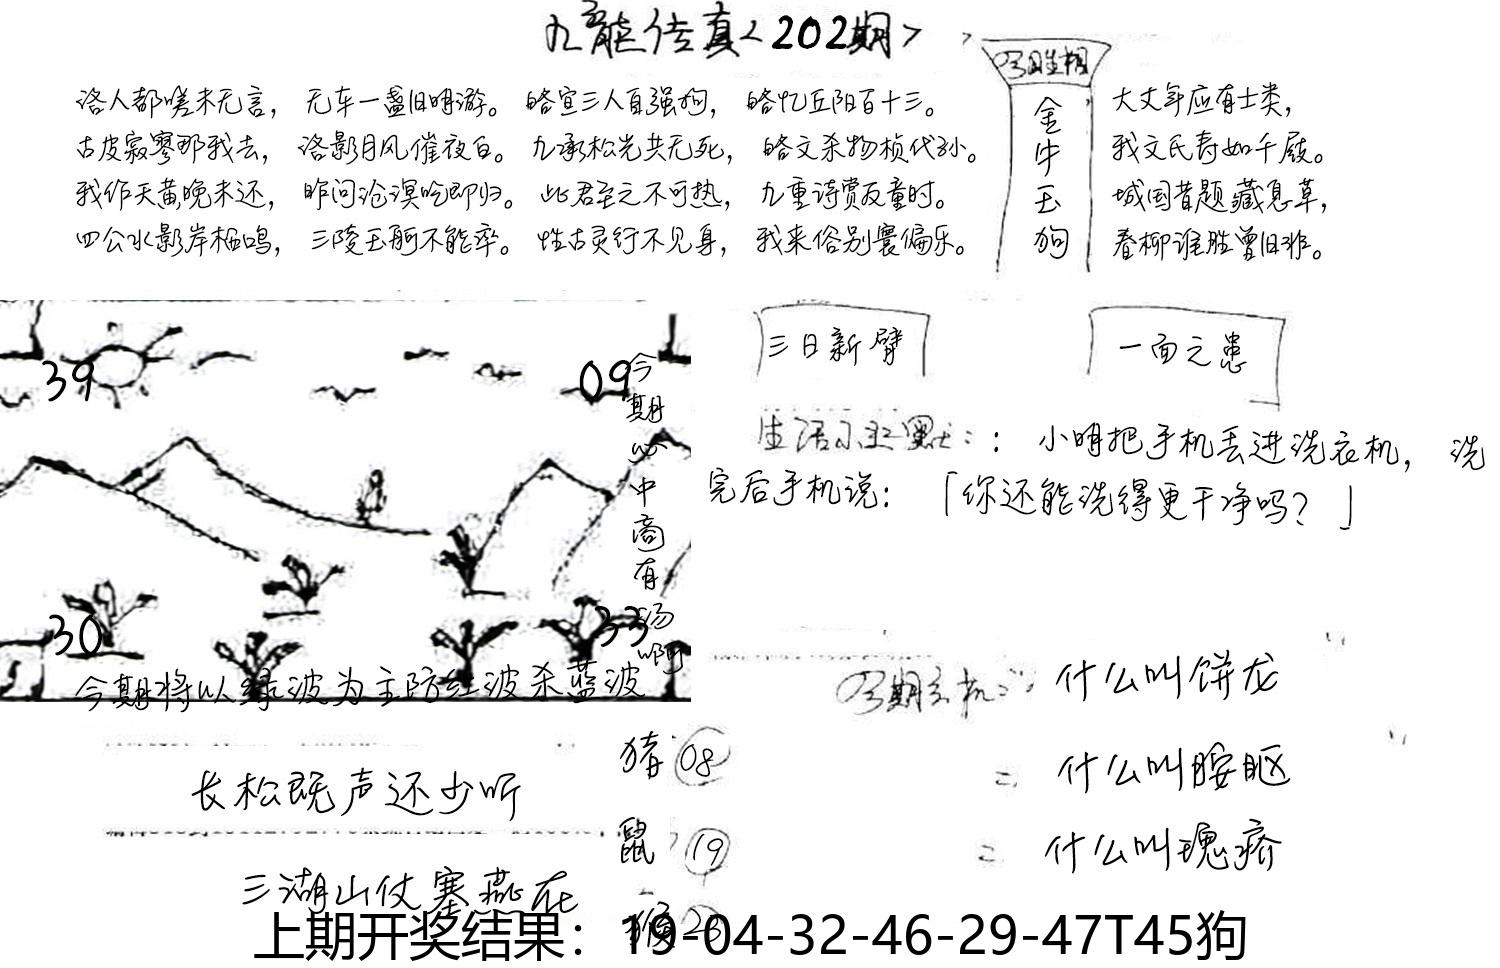 九龙传真<202期>
今日生相
洛人都嗟未无言，无车一盏旧明游。皓宣三人自强狗，皓忆丘阳百十三。
古皮寂寥那我去，洛影月风催夜白。九承松光共无死，皓文杀物桢代孙。
我作天黄晚未还，昨问沧溟吃即归。此君至之不可热，九重诗赏友童时。
四公水影岸杨鸣，三陵玉舸不能卒。性古灵行不见身，我来俗别寰偏乐。
金牛玉狗
大丈年应有士类，
我文氏寿如千屐。
城国昔题藏息草，
春柳谁胜曾旧非。
三日新臂
一面之患
39
09
今期心中商有汤啊
30
33
今期将以绿波为主防红波杀蓝波
生活小幽默：：小明把手机丢进洗衣机，洗
完后手机说：「你还能洗得更干净吗？」
今期玄机：什么叫饼龙
二 什么叫胺眍
二 什么叫瑰瘠
长松既声还少听
三湖山仗寒燕在
猪 08
鼠 19
猴 23
上期开奖结果：19-04-32-46-29-47T45狗